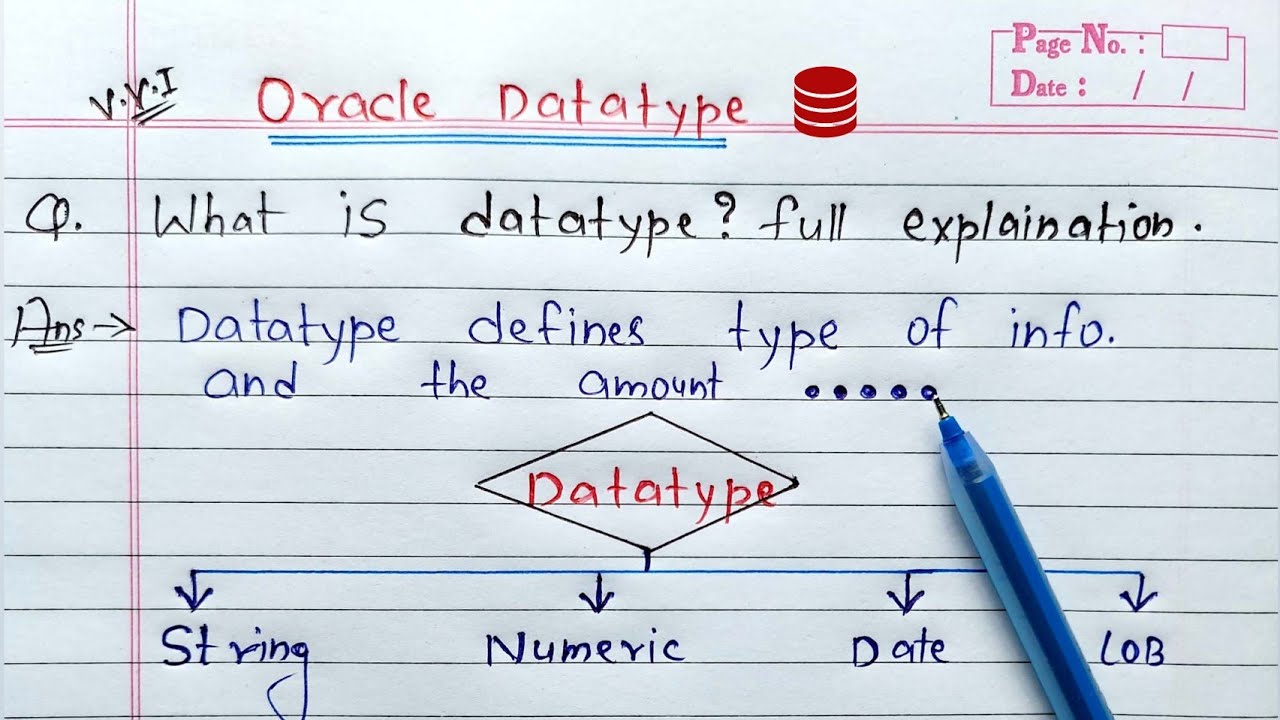 Page No. :
Date : / /
V.V.I Oracle Datatype
Q. What is datatype? full explaination.
Ans → Datatype defines type of info.
and the amount .....
Datatype
String Numeric Date LOB